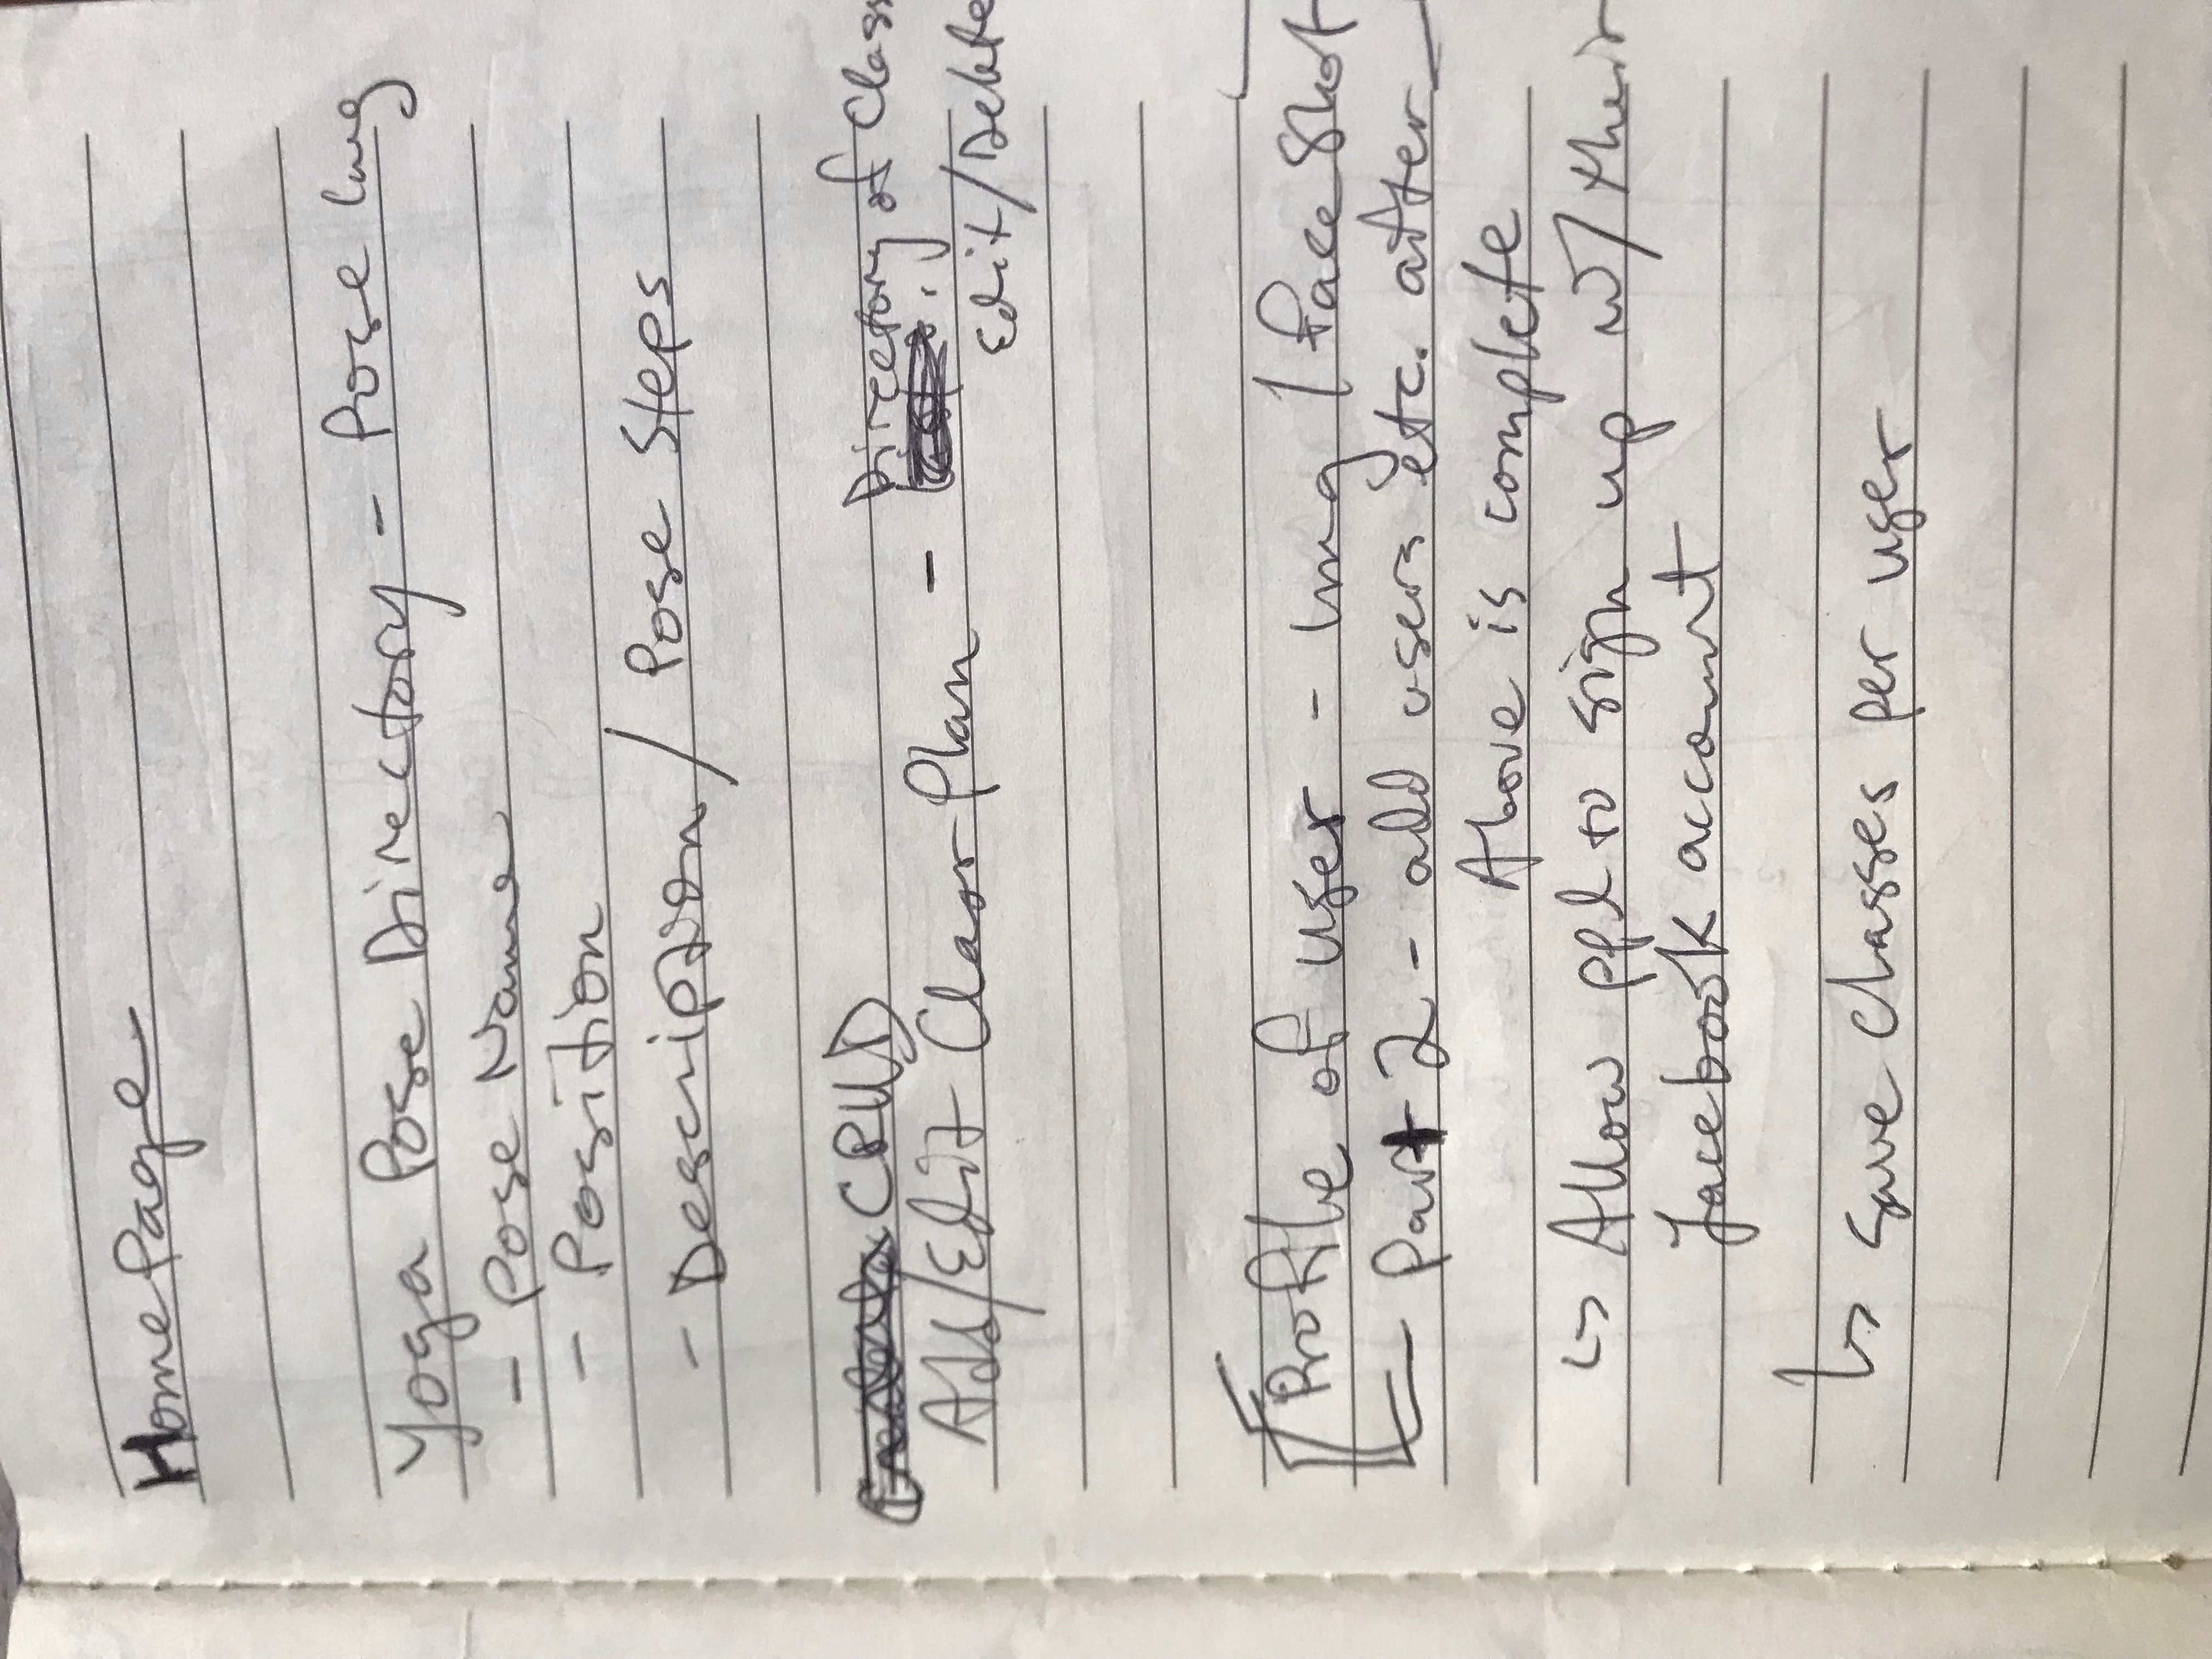 HomePage
Yoga Pose Directory - Pose Img
- Pose Name
- Position
- Description / Pose Steps
CRUD
Directory of Class
Add/Edit Class Plan -
Edit/Delete
Profile of user - Img / Face Shot
Part 2 - add users etc. after
Above is complete
↳ Allow ppl to sign up w/ their
facebook account
↳ Save classes per user